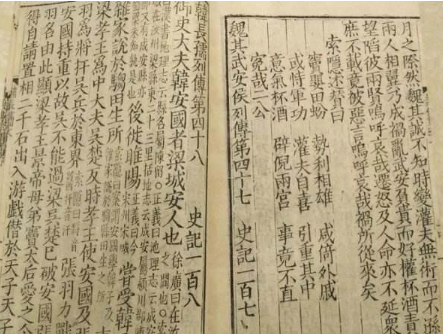 月之際然魏其誠不知時變灌夫無術而不
兩人相翼乃成禍亂武安負貴而好權杯酒責
望陷彼兩賢嗚呼哀哉遷怒及人命亦不延衆
庶不載竟被惡言嗚呼哀哉禍所從來矣
索隱述贊曰
竇嬰田蚡 勢利相雄 咸倚外戚
或恃軍功 灌夫自喜 引重其中
意氣杯酒 辟倪兩宮 事竟不直
冤哉二公
魏其武安侯列傳第四十七 史記一百七
韓長孺列傳第四十八 史記一百八
御史大夫韓安國者梁城安人也 徐廣曰在汝
後徙睢陽 嘗受韓
雜家說於騶田生所
孝王為中大夫吳楚反時孝王使安國及張
羽為將扞吳兵於東界 張羽力
安國持重以故吳不能過梁吳楚已破安國張
羽名由此顯梁孝王景帝母弟竇太后愛之令
得自請置相二千石出入游戲僭於天子天子